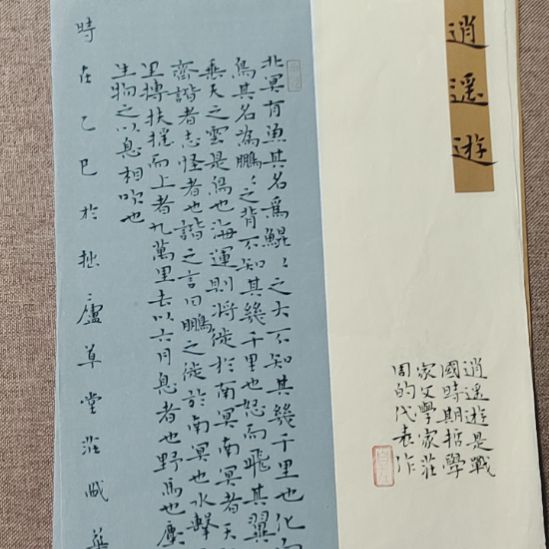 逍遥遊
逍遥遊是戰
國時期哲學
家文學家莊
周的代表作
北冥有漁其名爲鯤〻之大不知其幾千里也化而
鳥其名為鵬〻之背不知其幾千里也怒而飛其翼
垂天之雲是鳥也海運則將徙於南冥南冥者天
齊諧者志怪者也諧之言曰鵬之徙於南冥也水擊
里摶扶搖而上者九萬里去以六月息者也野馬也塵
生物之以息相吹也
時在乙巳於拙廬草堂莊